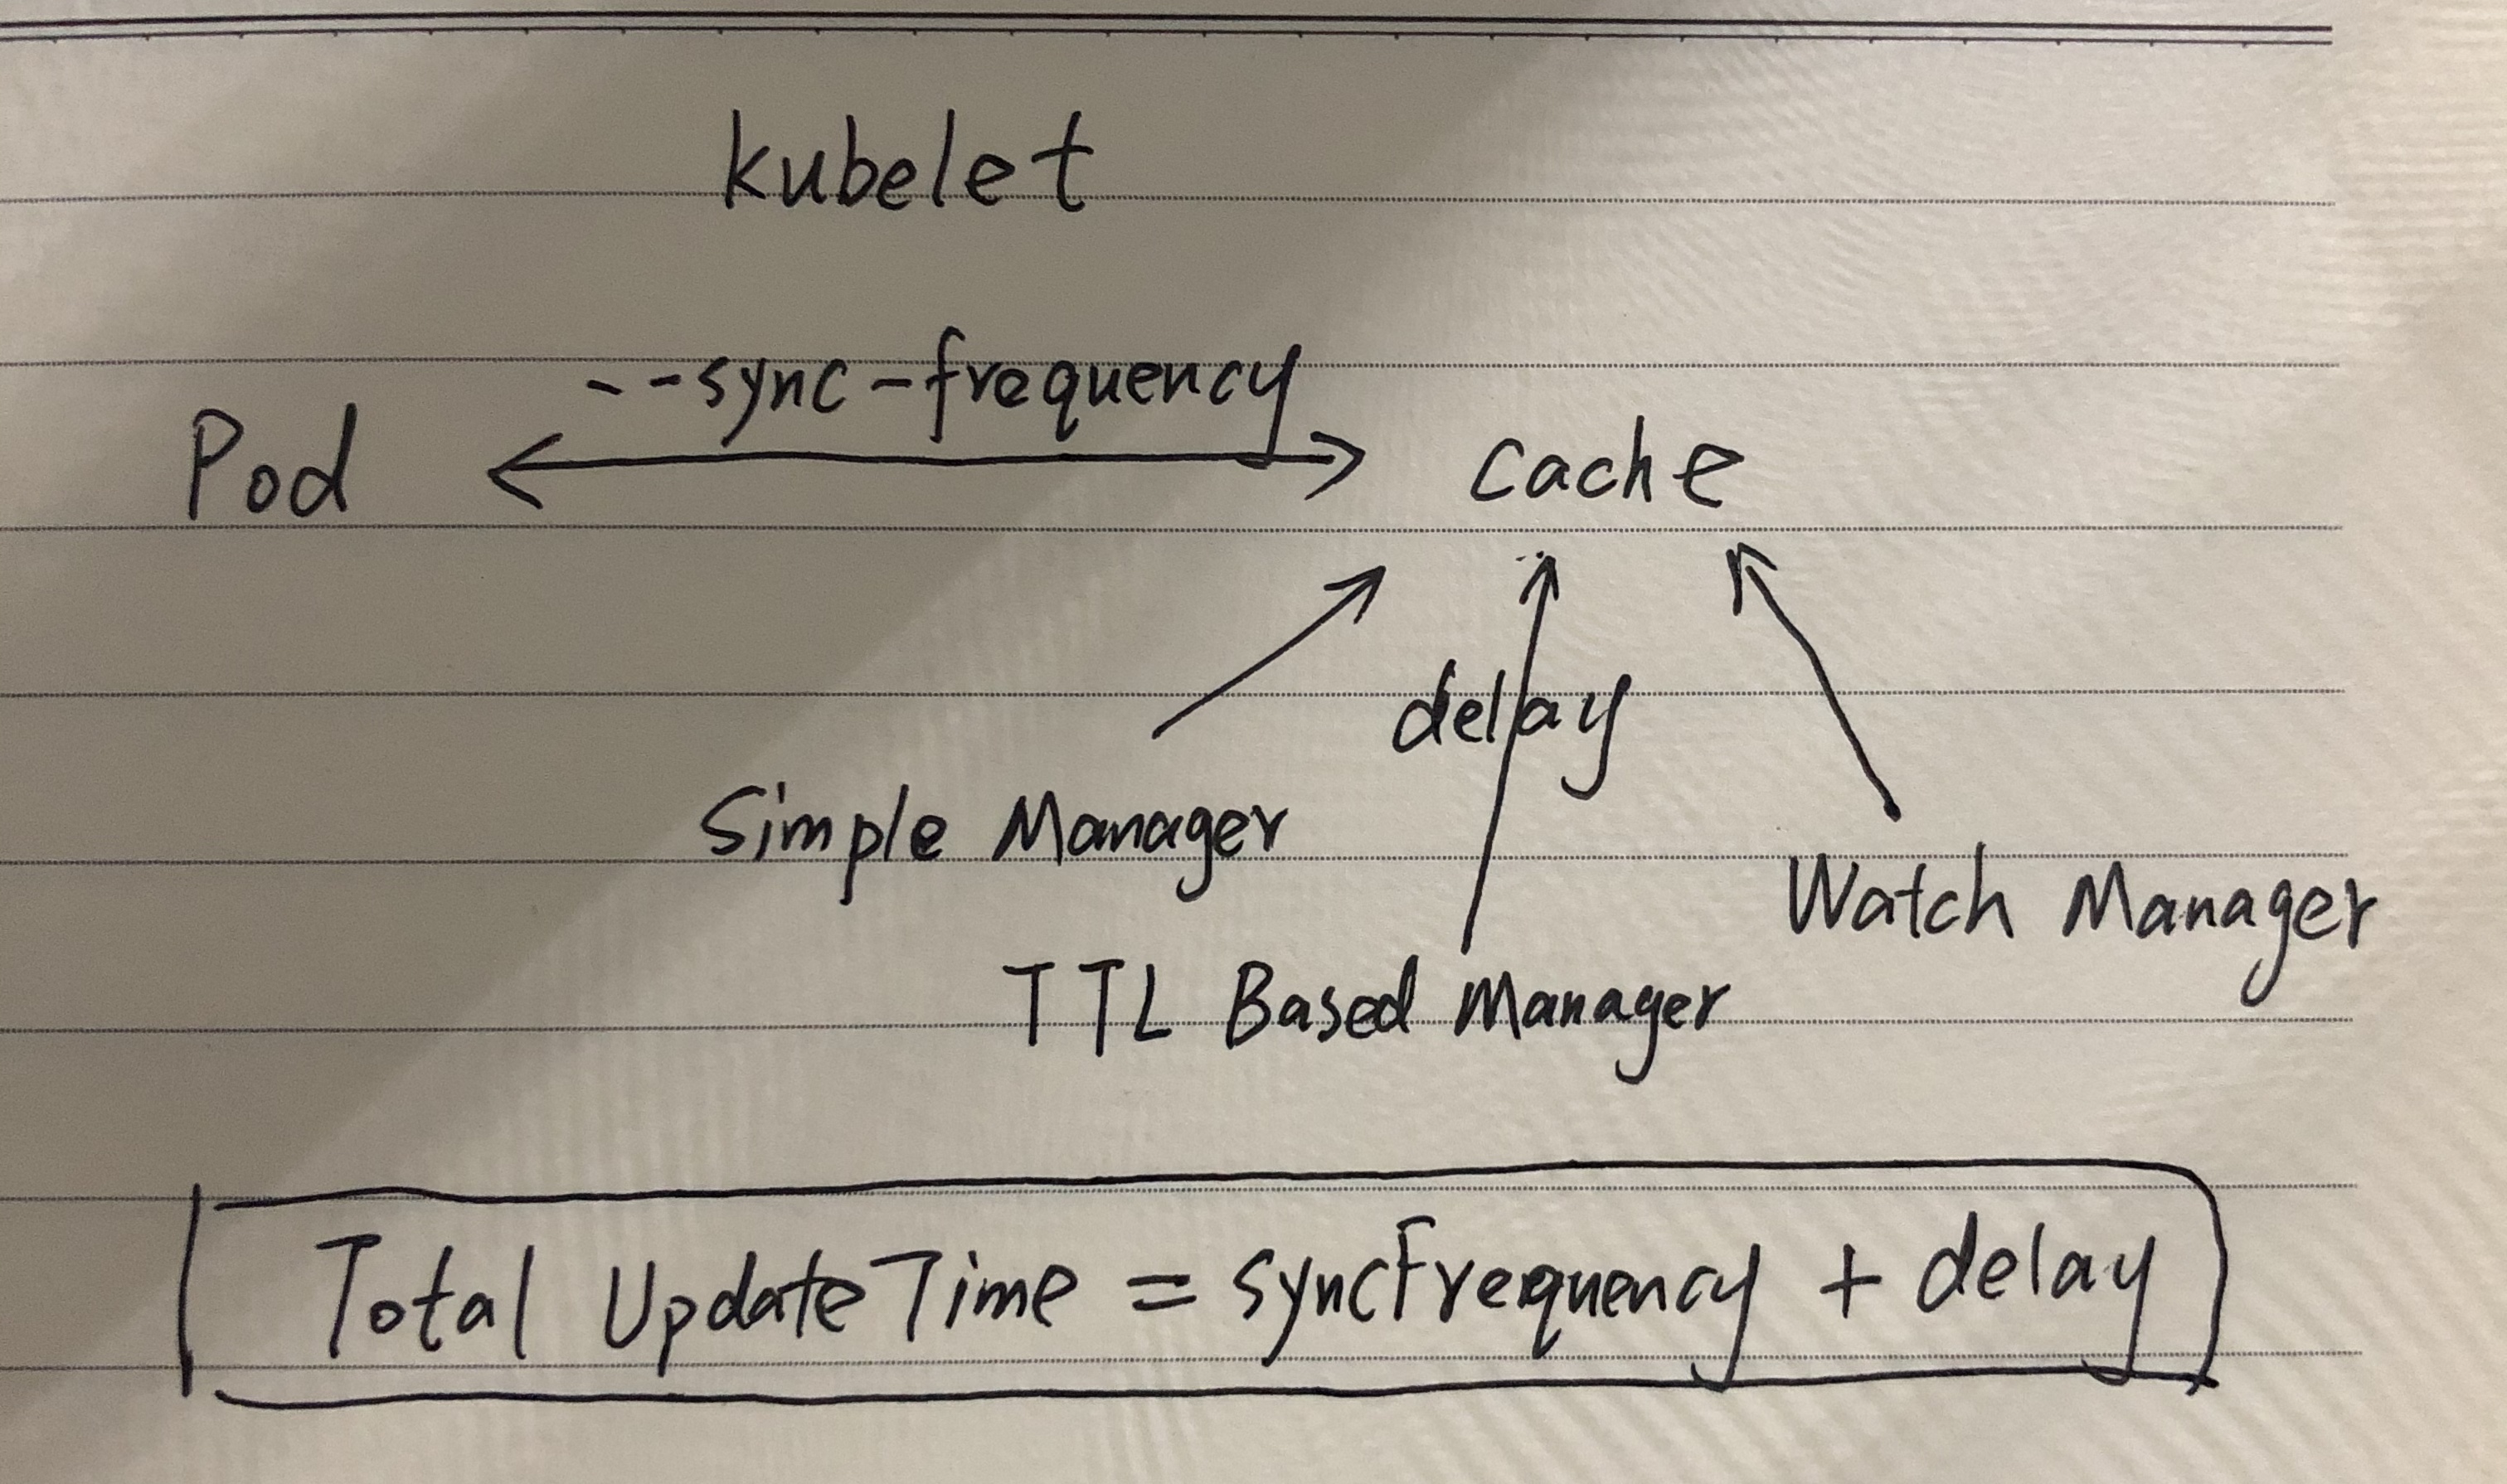 kubelet
--sync-frequency
Pod
cache
delay
Simple Manager
Watch Manager
TTL Based Manager
Total UpdateTime = syncFrequency + delay